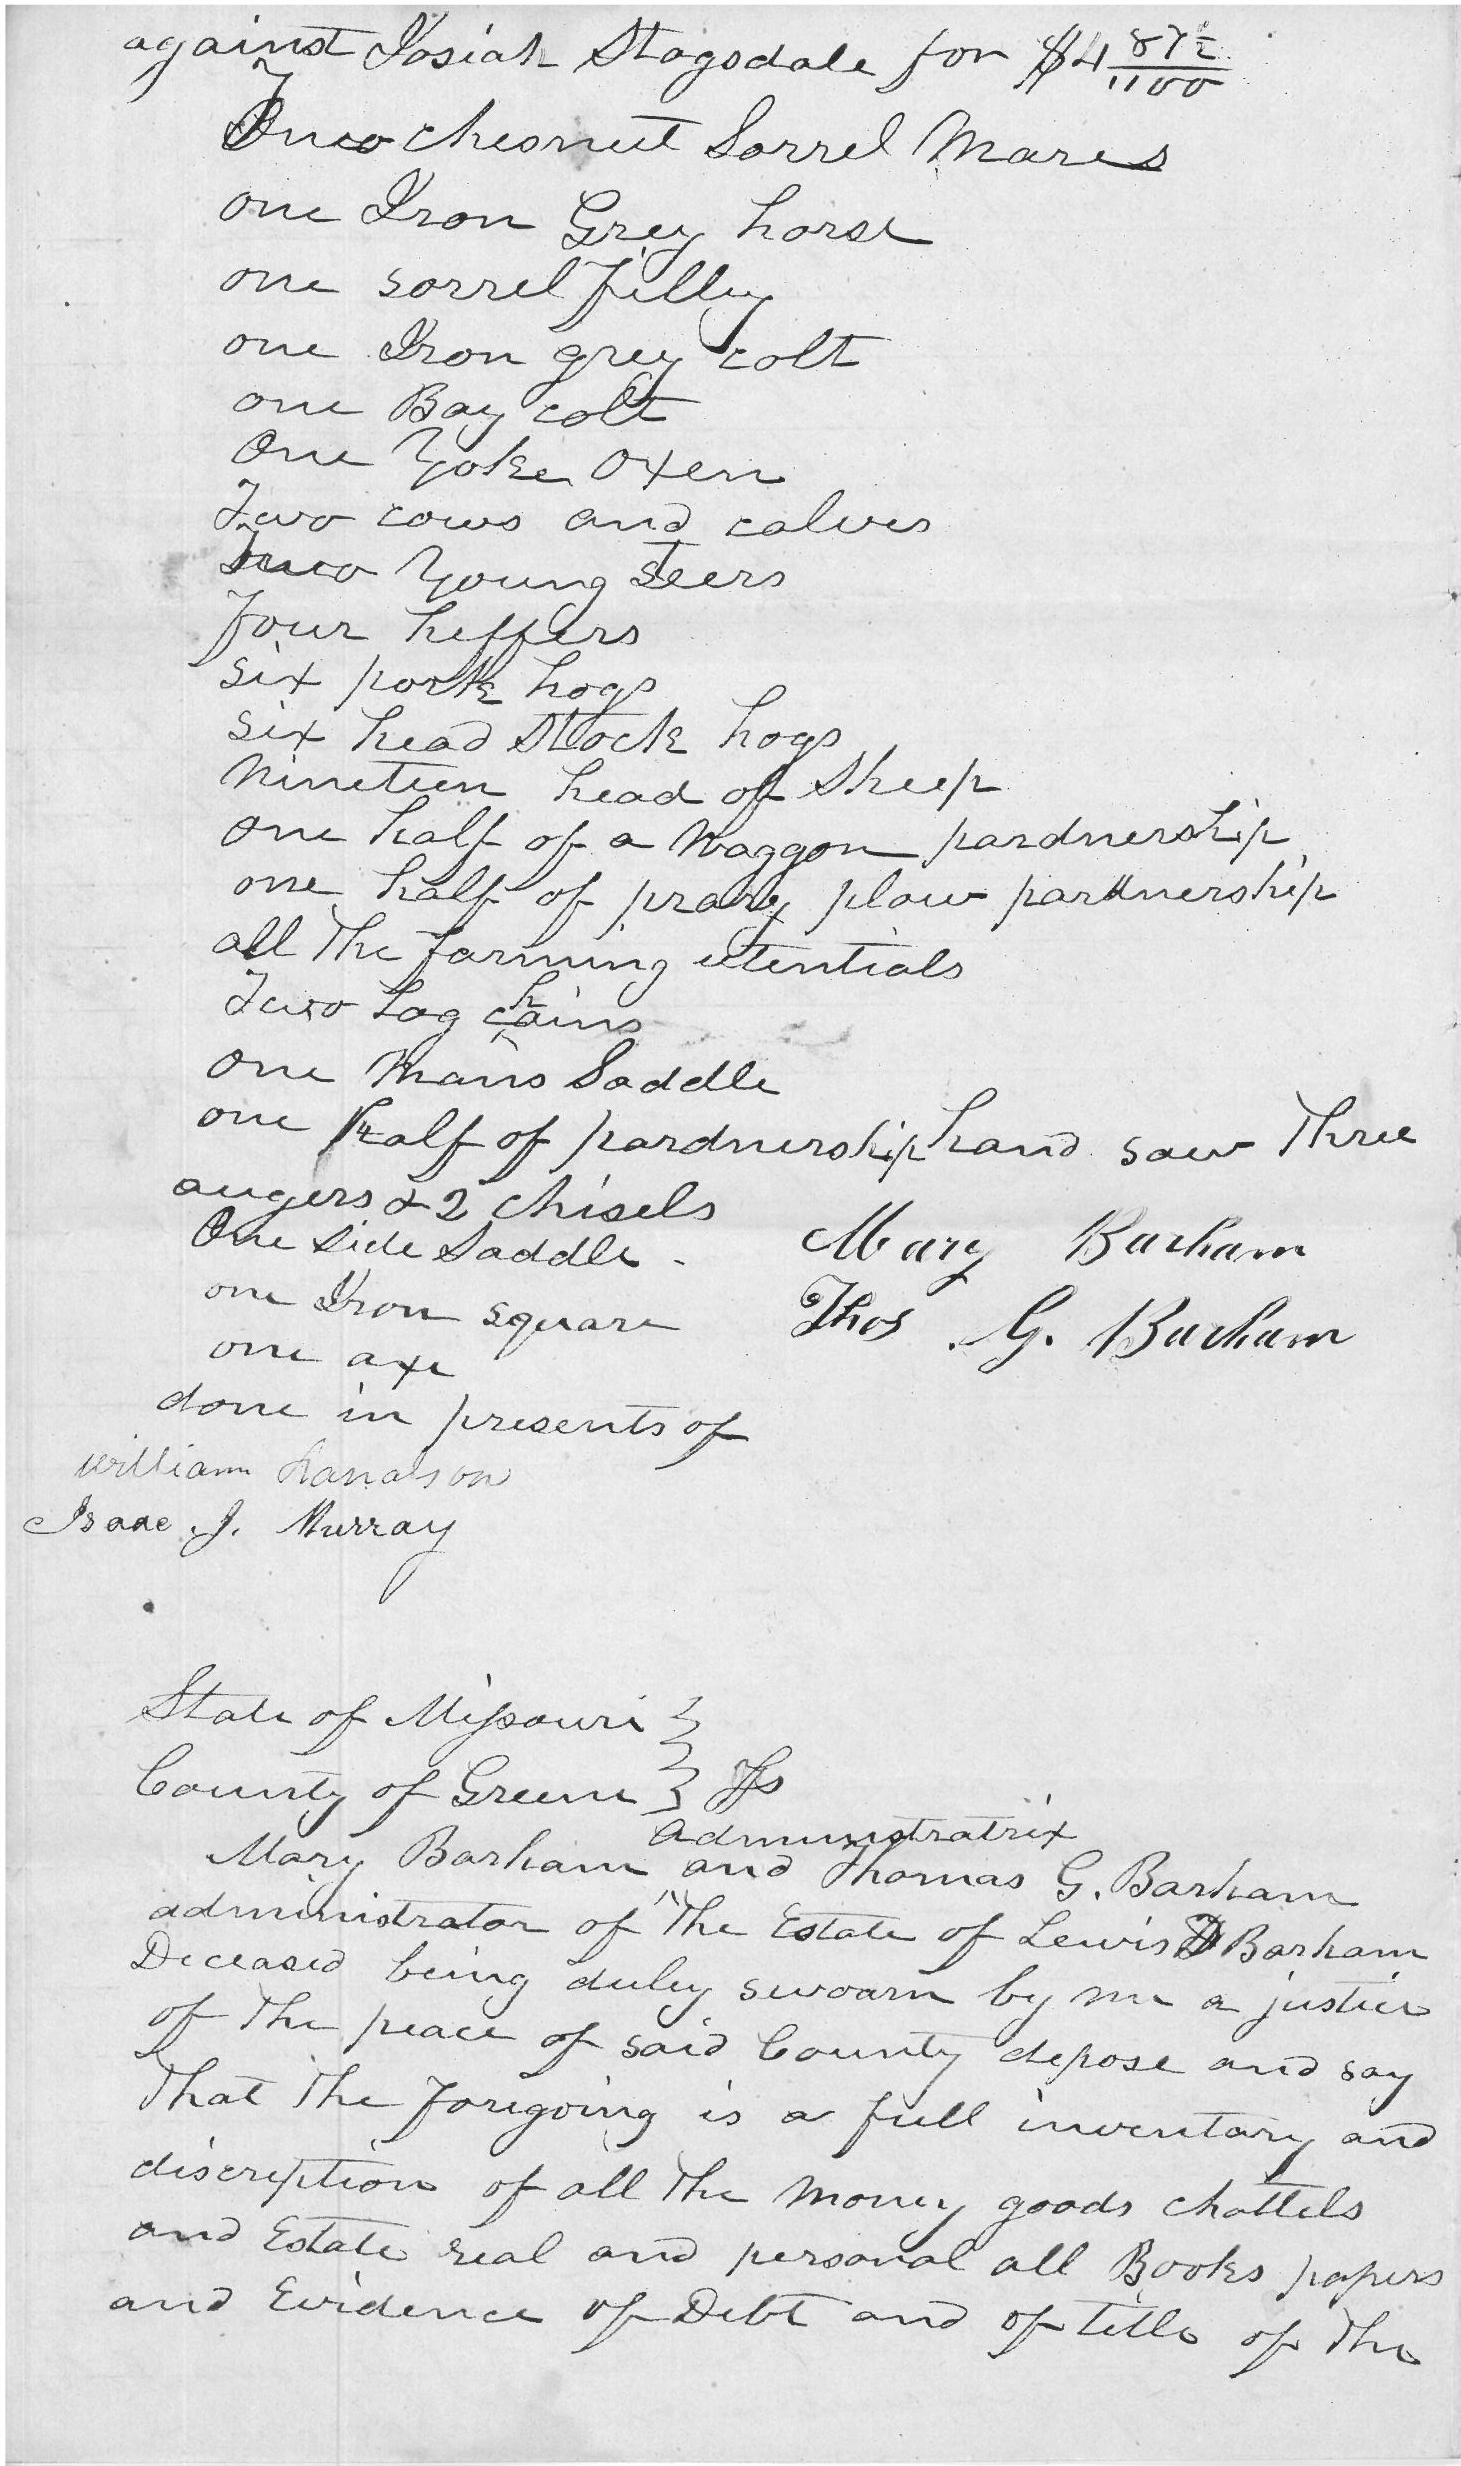 against Josiah Stogsdale for $4 87½/100
Two chesnut Sorrel Mares
one Iron Grey horse
one sorrel filley
one Iron grey colt
one Bay colt
One Yoke Oxen
Two cows and calves
Two Young Steers
Four heffers
six pork hogs
six head Stock hogs
Nineteen head of Sheep
one half of a Waggon pardnership
one half of prary plow partnership
all The farming utentials
Two Log chains
One Mans Saddle
one half of pardnership hand saw Three
augers & 2 chisels
One Side Saddle -
Mary Barham
one Iron square
Thos . G. Barham
one axe
done in presents of
William
Isaac . J. Murray
State of Missouri }
County of Green } Ss
Administratrix
Mary Barham and Thomas G. Barham
administrator of The Estate of Lewis D Barham
Deceased being duley sworn by me a justice
of The peace of said County depose and say
That The Foregoing is a full inventary and
discription of all The Money goods chattels
and Estate real and personal all Books papers
and Evidence of Debt and of title of The